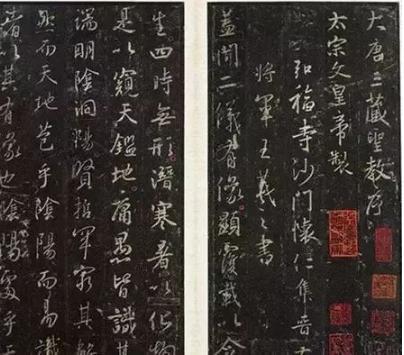 大唐三藏聖教序
太宗文皇帝製
弘福寺沙門懷仁集晉
將軍王羲之書
蓋聞二儀有像顯覆載以含
生四時無形潛寒暑以化物
是以窺天鑑地庸愚皆識其
端明陰洞陽賢哲罕窮其數
然而天地苞乎陰陽而易識
者以其有像也陰陽處乎天